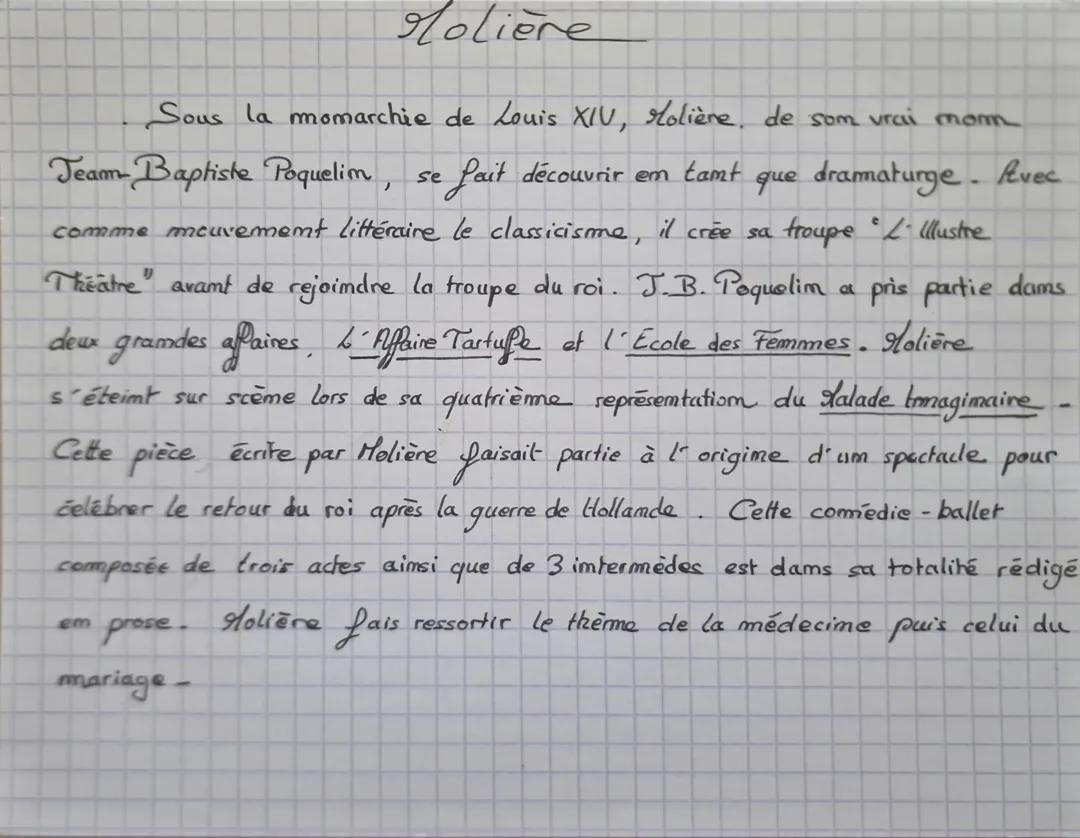 Molière
Sous la monarchie de Louis XIV, Molière, de son vrai nom
Jean-Baptiste Poquelin, se fait découvrir en tant que dramaturge. Avec
comme mouvement littéraire le classicisme, il crée sa troupe "L'Illustre
Théâtre" avant de rejoindre la troupe du roi. J.B. Poquelin a pris partie dans
deux grandes affaires, L'Affaire Tartuffe et l'Ecole des Femmes. Molière
s'éteint sur scène lors de sa quatrième représentation du Malade Imaginaire.
Cette pièce écrite par Molière faisait partie à l'origine d'un spectacle pour
célébrer le retour du roi après la guerre de Hollande. Cette comédie-ballet
composée de trois actes ainsi que de 3 intermèdes est dans sa totalité rédigé
en prose. Molière fais ressortir le thème de la médecine puis celui du
mariage.